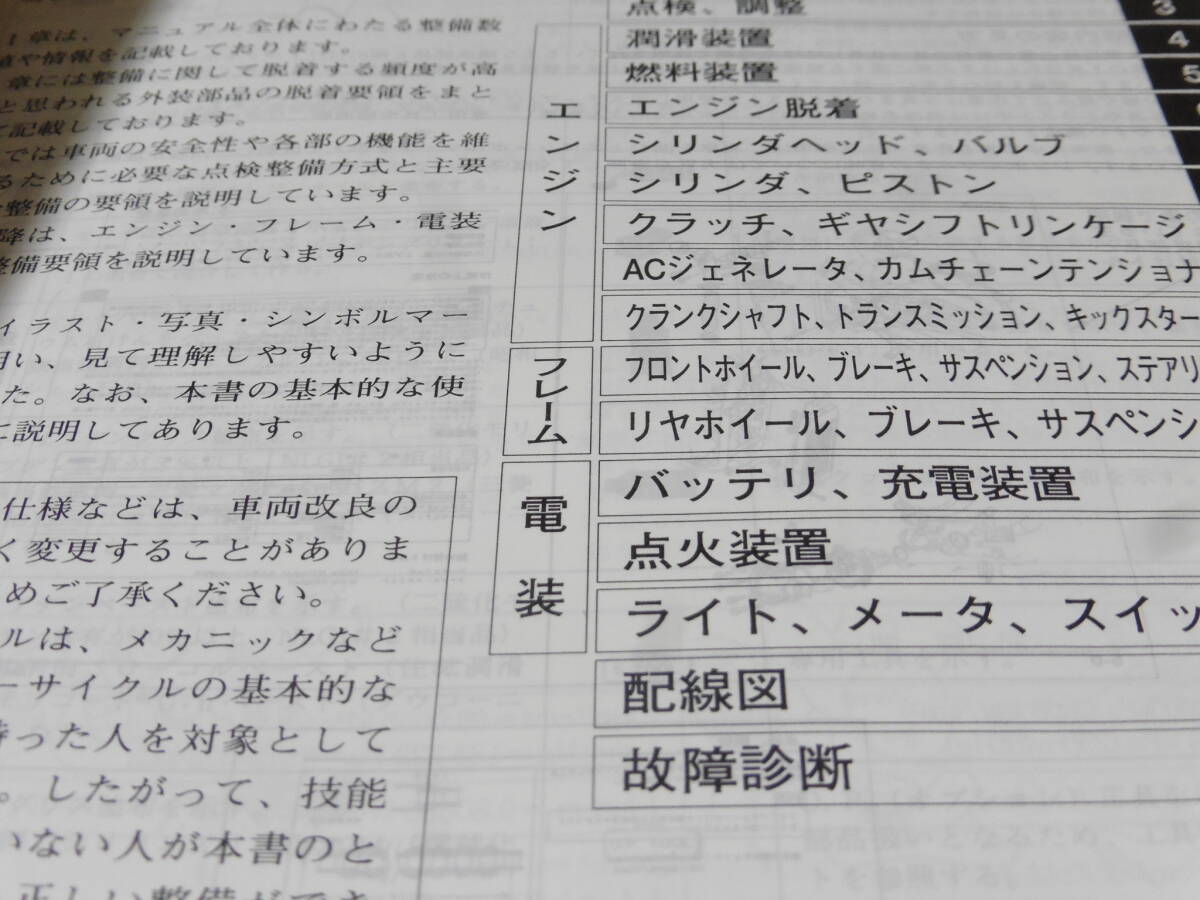 1章は、マニュアル全体にわたる整備数
や情報を記載しております。
章には整備に関して脱着する頻度が高
と思われる外装部品の脱着要領をまと
記載しております。
では車両の安全性や各部の機能を維
るために必要な点検整備方式と主要
整備の要領を説明しています。
降は、エンジン・フレーム・電装
整備要領を説明しています。
イラスト・写真・シンボルマー
用い、見て理解しやすいように
た。なお、本書の基本的な使
に説明してあります。
仕様などは、車両改良の
く変更することがありま
めご了承ください。
ルは、メカニックなど
ーサイクルの基本的な
持った人を対象として
。したがって、技能
いない人が本書のと
正しい整備ができ
点検、調整 3
潤滑装置 4
燃料装置 5
エンジン
エンジン脱着
シリンダヘッド、バルブ
シリンダ、ピストン
クラッチ、ギヤシフトリンケージ
ACジェネレータ、カムチェーンテンショナ
クランクシャフト、トランスミッション、キックスター
フレーム
フロントホイール、ブレーキ、サスペンション、ステアリ
リヤホイール、ブレーキ、サスペンシ
電装
バッテリ、充電装置
点火装置
ライト、メータ、スイッ
配線図
故障診断